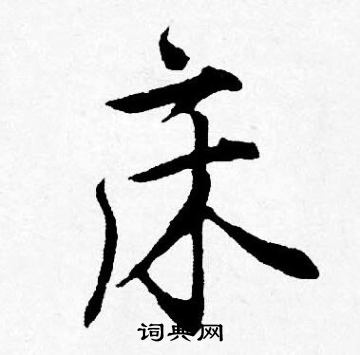 床
词典网